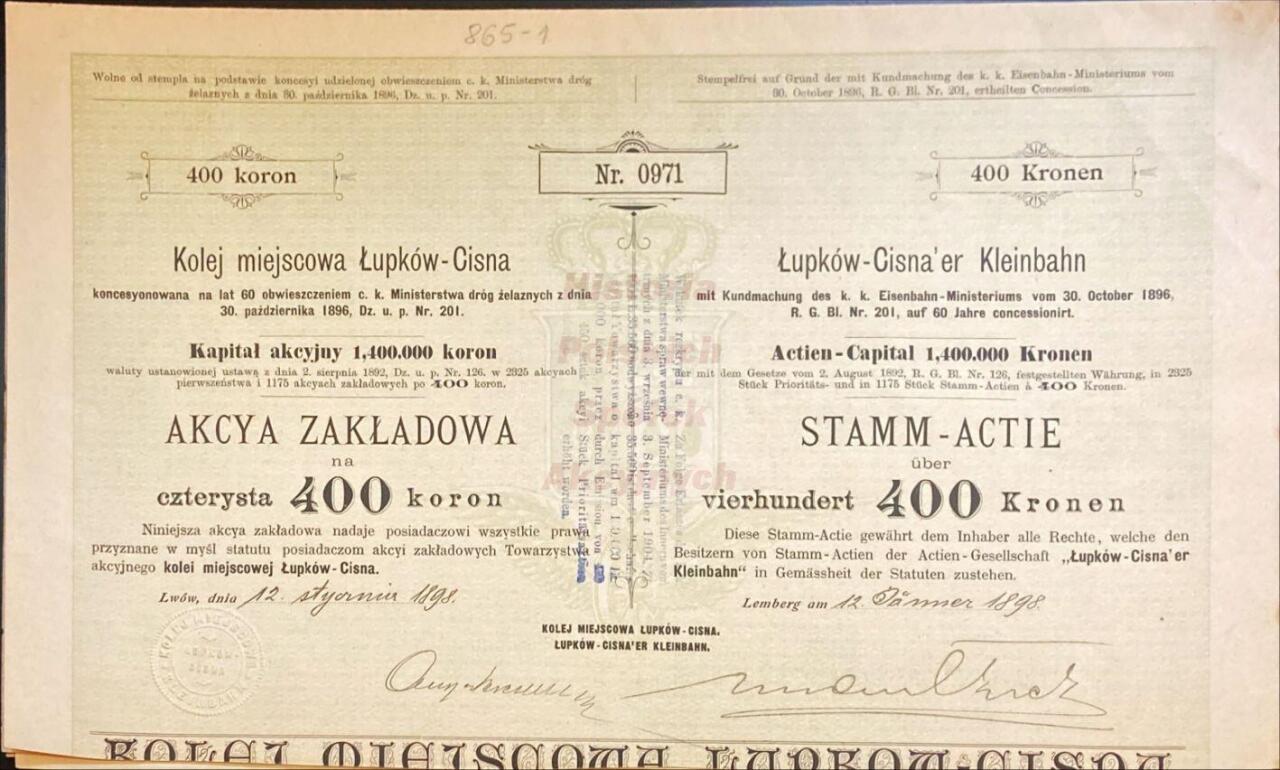 865-1
Wolne od stempla na podstawie koncesyi udzielonej obwieszczeniem c. k. Ministerstwa dróg
żelaznych z dnia 30. października 1896, Dz. u. p. Nr. 201.
Stempelfrei auf Grund der mit Kundmachung des k. k. Eisenbahn-Ministeriums vom
30. October 1896, R. G. Bl. Nr. 201, ertheilten Concession.
400 koron
Nr. 0971
400 Kronen
Kolej miejscowa Łupków-Cisna
koncesyonowana na lat 60 obwieszczeniem c. k. Ministerstwa dróg żelaznych z dnia
30. października 1896, Dz. u. p. Nr. 201.
Kapitał akcyjny 1,400.000 koron
waluty ustanowionej ustawą z dnia 2. sierpnia 1892, Dz. u. p. Nr. 126. w 2325 akcyach
pierwszeństwa i 1175 akcyach zakładowych po 400 koron.
AKCYA ZAKŁADOWA
na
czterysta 400 koron
Niniejsza akcya zakładowa nadaje posiadaczowi wszystkie prawa
przyznane w myśl statutu posiadaczom akcyi zakładowych Towarzystwa
akcyjnego kolei miejscowej Łupków-Cisna.
Lwów, dnia 12. stycznia 1898.
Łupków-Cisna'er Kleinbahn
mit Kundmachung des k. k. Eisenbahn-Ministeriums vom 30. October 1896,
R. G. Bl. Nr. 201, auf 60 Jahre concessionirt.
Actien-Capital 1,400.000 Kronen
der mit dem Gesetze vom 2. August 1892, R. G. Bl. Nr. 126, festgestellten Währung, in 2325
Stück Prioritäts- und in 1175 Stück Stamm-Actien à 400 Kronen.
STAMM-ACTIE
über
vierhundert 400 Kronen
Diese Stamm-Actie gewährt dem Inhaber alle Rechte, welche den
Besitzern von Stamm-Actien der Actien-Gesellschaft „Łupków-Cisna'er
Kleinbahn“ in Gemässheit der Statuten zustehen.
Lemberg am 12. Jänner 1898.
Historia
Polskich
Spółek
Akcyjnych
KOLEJ MIEJSCOWA ŁUPKÓW-CISNA.
ŁUPKÓW-CISNA'ER KLEINBAHN.
KOLEJ MIEJSCOWA ŁUPKÓW-CISNA